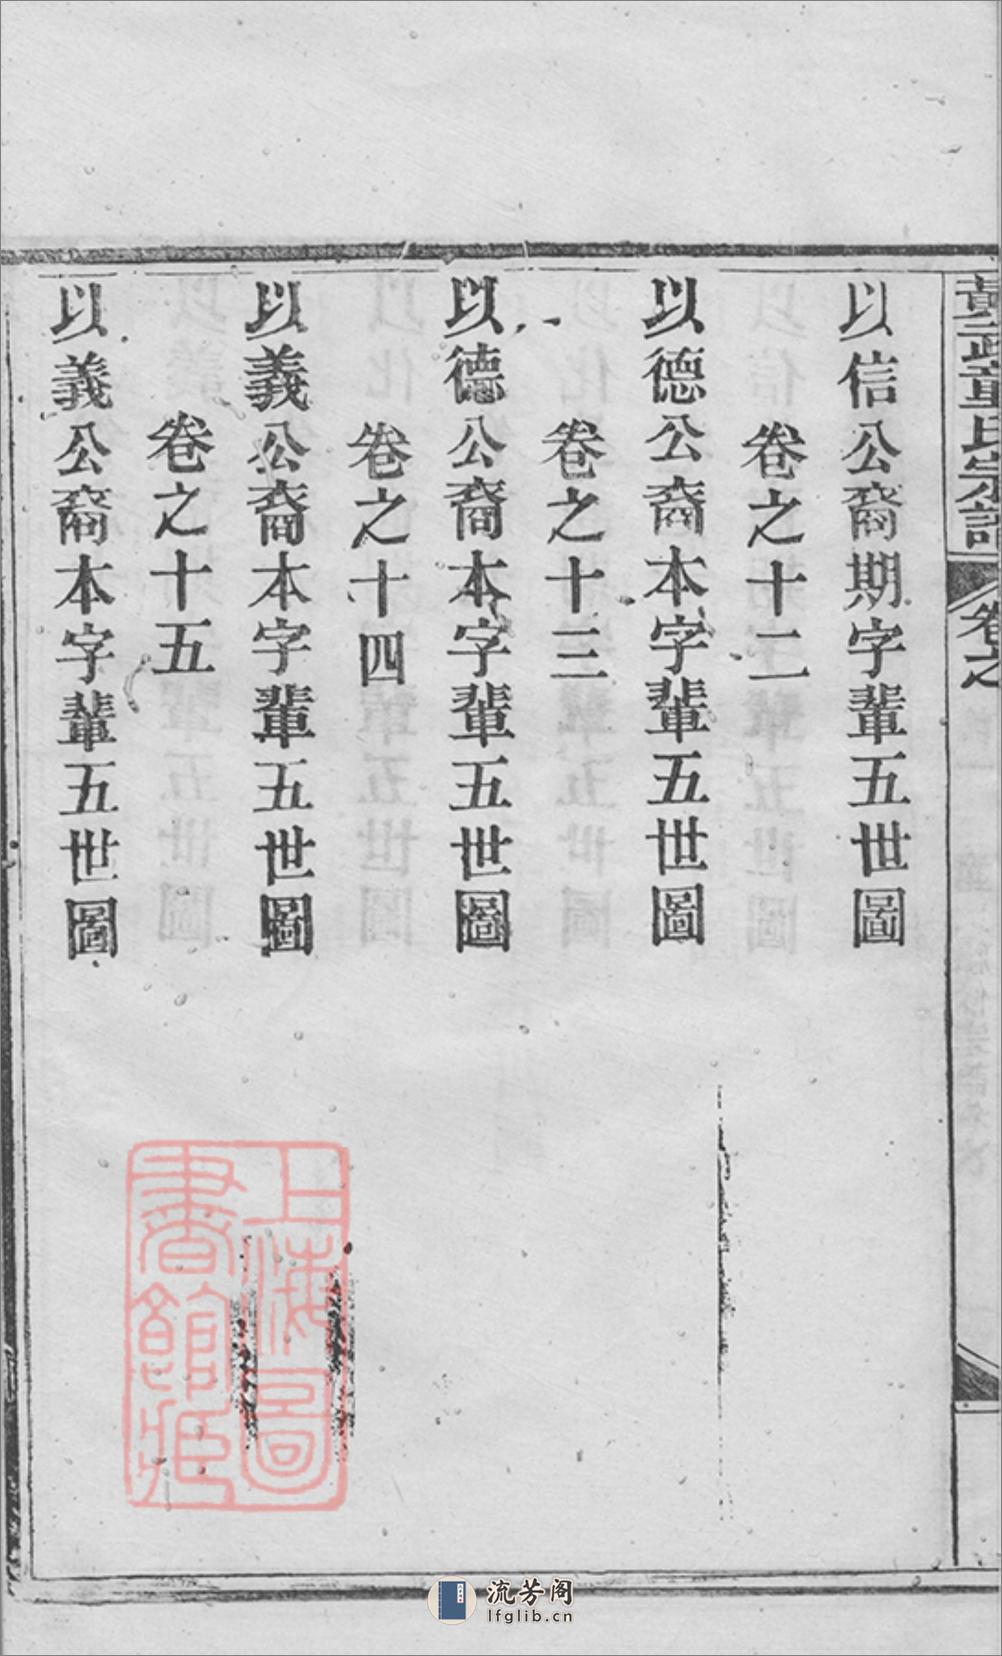 黃武章氏宗譜 卷之
以信公裔期字輩五世圖
卷之十二
以德公裔本字輩五世圖
卷之十三
以德公裔本字輩五世圖
卷之十四
以義公裔本字輩五世圖
卷之十五
以義公裔本字輩五世圖
上海圖
書館藏
流芳阁
lfglib.cn